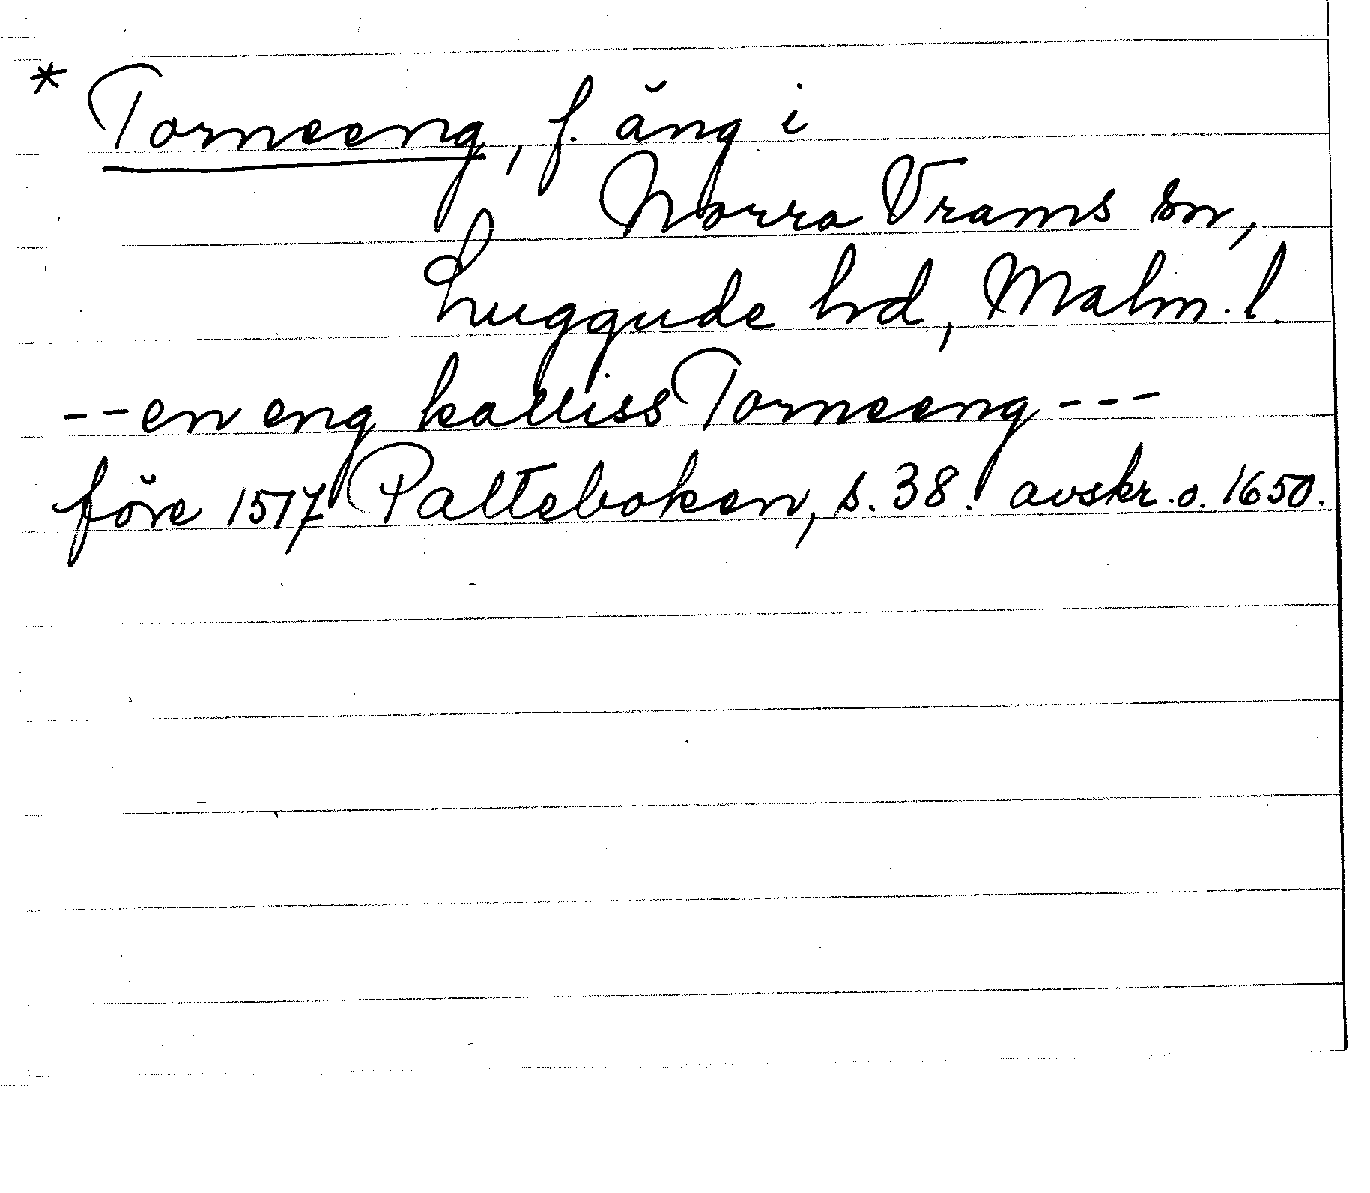 * Torneeng, f. äng i
Norra Vrams sn,
Luggude hd, Malm. l.
-- en eng kalliss Torneeng ---
före 1517 Palteboken, s. 38. avskr. o. 1650.